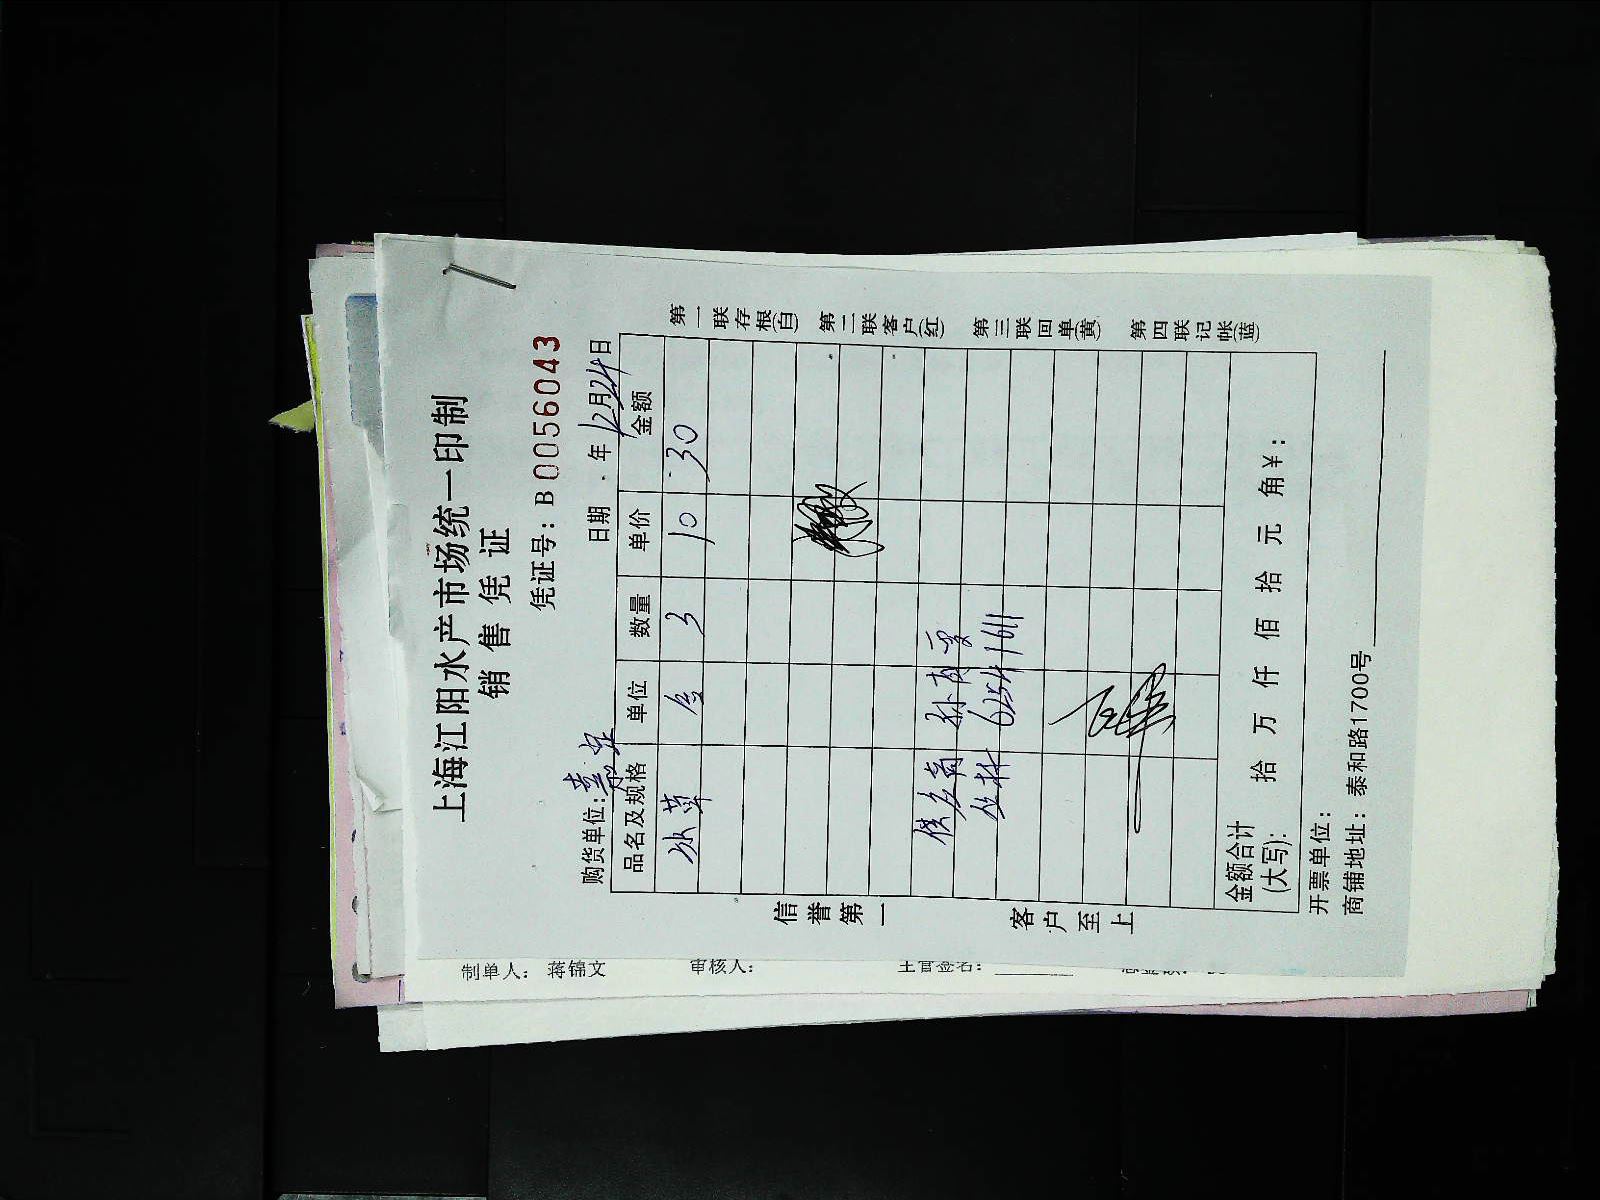 上海江阳水产市场统一印制
销售凭证
凭证号：B0056043
购货单位：
日期 . 年12月24日
品名及规格 单位 数量 单价 金额
3 10 30
6254 1611
金额合计(大写)： 拾 万 仟 佰 拾 元 角￥：
开票单位：
商铺地址：泰和路1700号
信誉第一 客户至上
第一联存根(白) 第二联客户(红) 第三联回单(黄) 第四联记帐(蓝)
制单人： 蒋锦文 审核人： 主管签名：